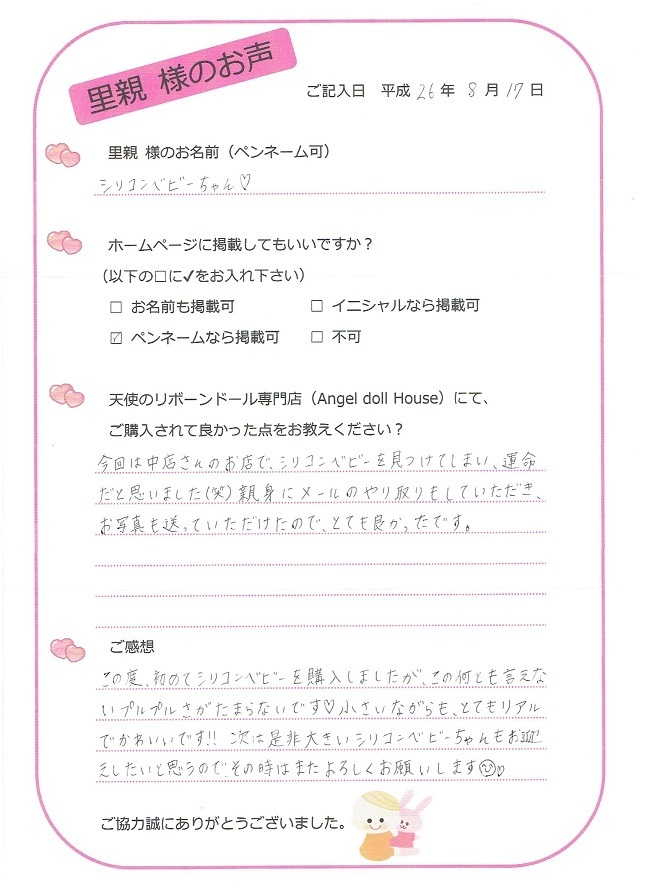 里親 様のお声
ご記入日 平成 26 年 8 月 17 日
里親 様のお名前（ペンネーム可）
シリコンベビーちゃん♡
ホームページに掲載してもいいですか？
（以下の□に✓をお入れ下さい）
□ お名前も掲載可 □ イニシャルなら掲載可
☑ ペンネームなら掲載可 □ 不可
天使のリボーンドール専門店（Angel doll House）にて、
ご購入されて良かった点をお教えください？
今回は中店さんのお店で、シリコンベビーを見つけてしまい、運命
だと思いました(笑) 親身にメールのやり取りもしていただき、
お写真も送っていただけたので、とても良かったです。
ご感想
この度、初めてシリコンベビーを購入しましたが、この何とも言えな
いプルプルさがたまらないです♡小さいながらも、とてもリアル
でかわいいです!! 次は是非大きいシリコンベビーちゃんもお迎
えしたいと思うので、その時はまたよろしくお願いします☺♡
ご協力誠にありがとうございました。